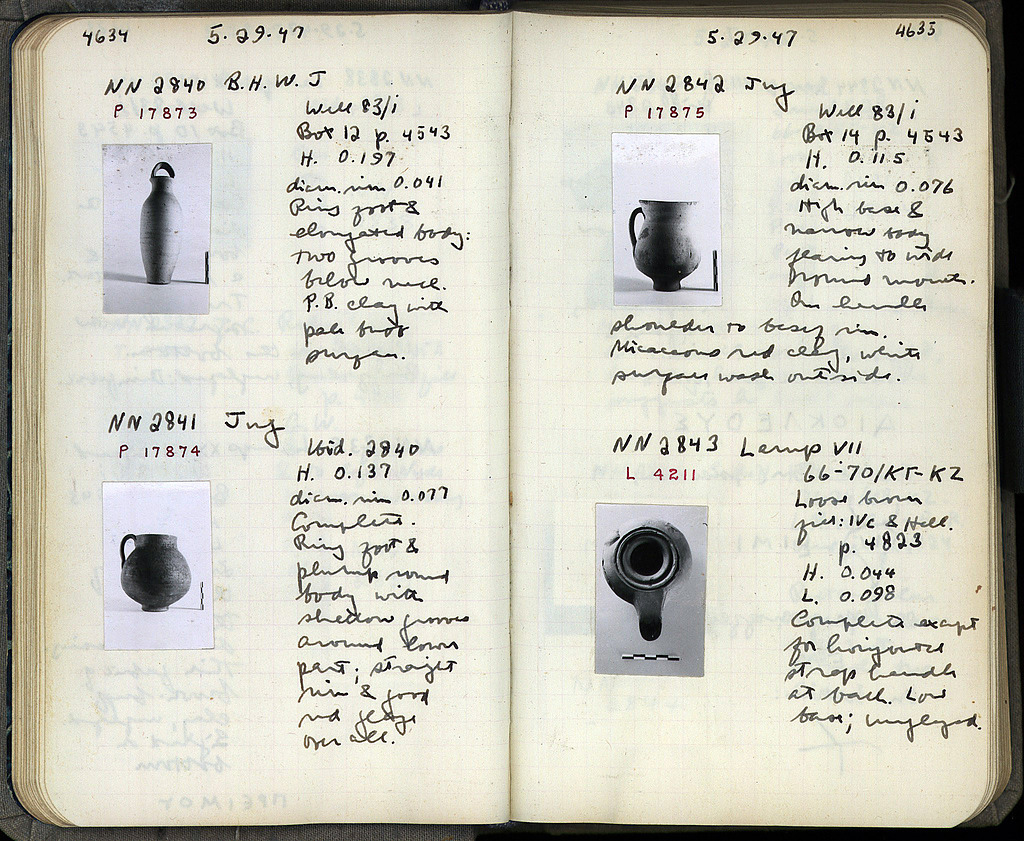 4634
5·29·47
NN 2840 B.H.W. J
P 17873
Well 83/i
Box 12 p. 4543
H. 0.197
diam. rim 0.041
Ring foot &
elongated body:
two grooves
below neck.
P.B. clay with
pale buff
surface.
NN 2841 Jug
P 17874
Ibid. 2840
H. 0.137
diam. rim 0.077
Complete.
Ring foot &
plump round
body with
shallow grooves
around lower
part; straight
rim & good
red glaze
over all.
5·29·47
4635
NN 2842 Jug
P 17875
Well 83/i
Box 14 p. 4543
H. 0.115
diam. rim 0.076
High base &
narrow body
flaring to wide
mouth.
One handle
shoulder to rim.
Micaceous red clay, white
surface wash outside.
NN 2843 Lamp VII
L 4211
66-70/KF-KZ
Loose brown
fill: IVc & Hell.
p. 4823
H. 0.044
L. 0.098
Complete except
for horizontal
strap handle
at back. Low
base; unglazed.